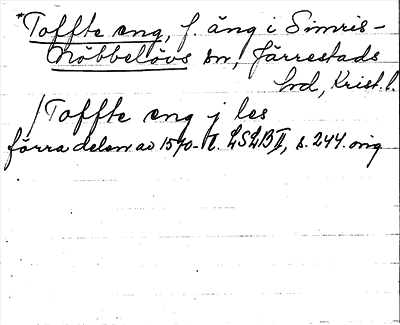 *Toffte eng, f. äng i Simris-
Nöbbelövs sn, Järrestads
hd, Krist. l.
/Toffte eng j les
förra delen av 1570-t. LSLB II, s. 244. orig